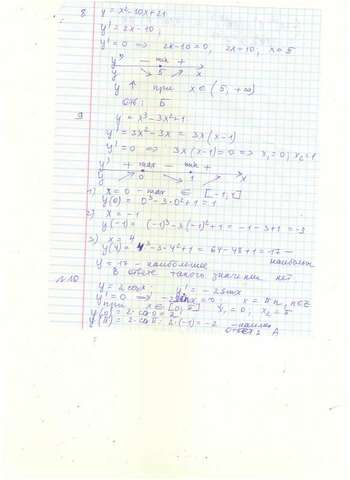 8 y = x² - 10x + 21
y' = 2x - 10;
y' = 0 => 2x - 10 = 0, 2x = 10, x = 5
y' - min +
y 5 x
y ↑ при x ∈ (5, +∞)
Отв: Б
9 y = x³ - 3x² + 1
y' = 3x² - 3x = 3x(x-1)
y' = 0 => 3x(x-1) = 0 => x₁ = 0; x₂ = 1
y' + max - min +
y 0 1 x
1) x = 0 - max ∈ [-1;
y(0) = 0³ - 3·0² + 1 = 1
2) x = -1
y(-1) = (-1)³ - 3(-1)² + 1 = -1 - 3 + 1 = -3
3) x = 4
y(4) = 4³ - 3·4² + 1 = 64 - 48 + 1 = 17 - наибольш
y = 17 - наибольшее
В ответе такого значения нет
№10
y = 2cosx y' = -2sinx
y' = 0 => -2sinx = 0, x = πn, n∈Z
при x ∈ [0; π] x₁ = 0, x₂ = π
y(0) = 2·cos0 = 2
y(π) = 2·cosπ = 2·(-1) = -2 - наимен
Ответ: А